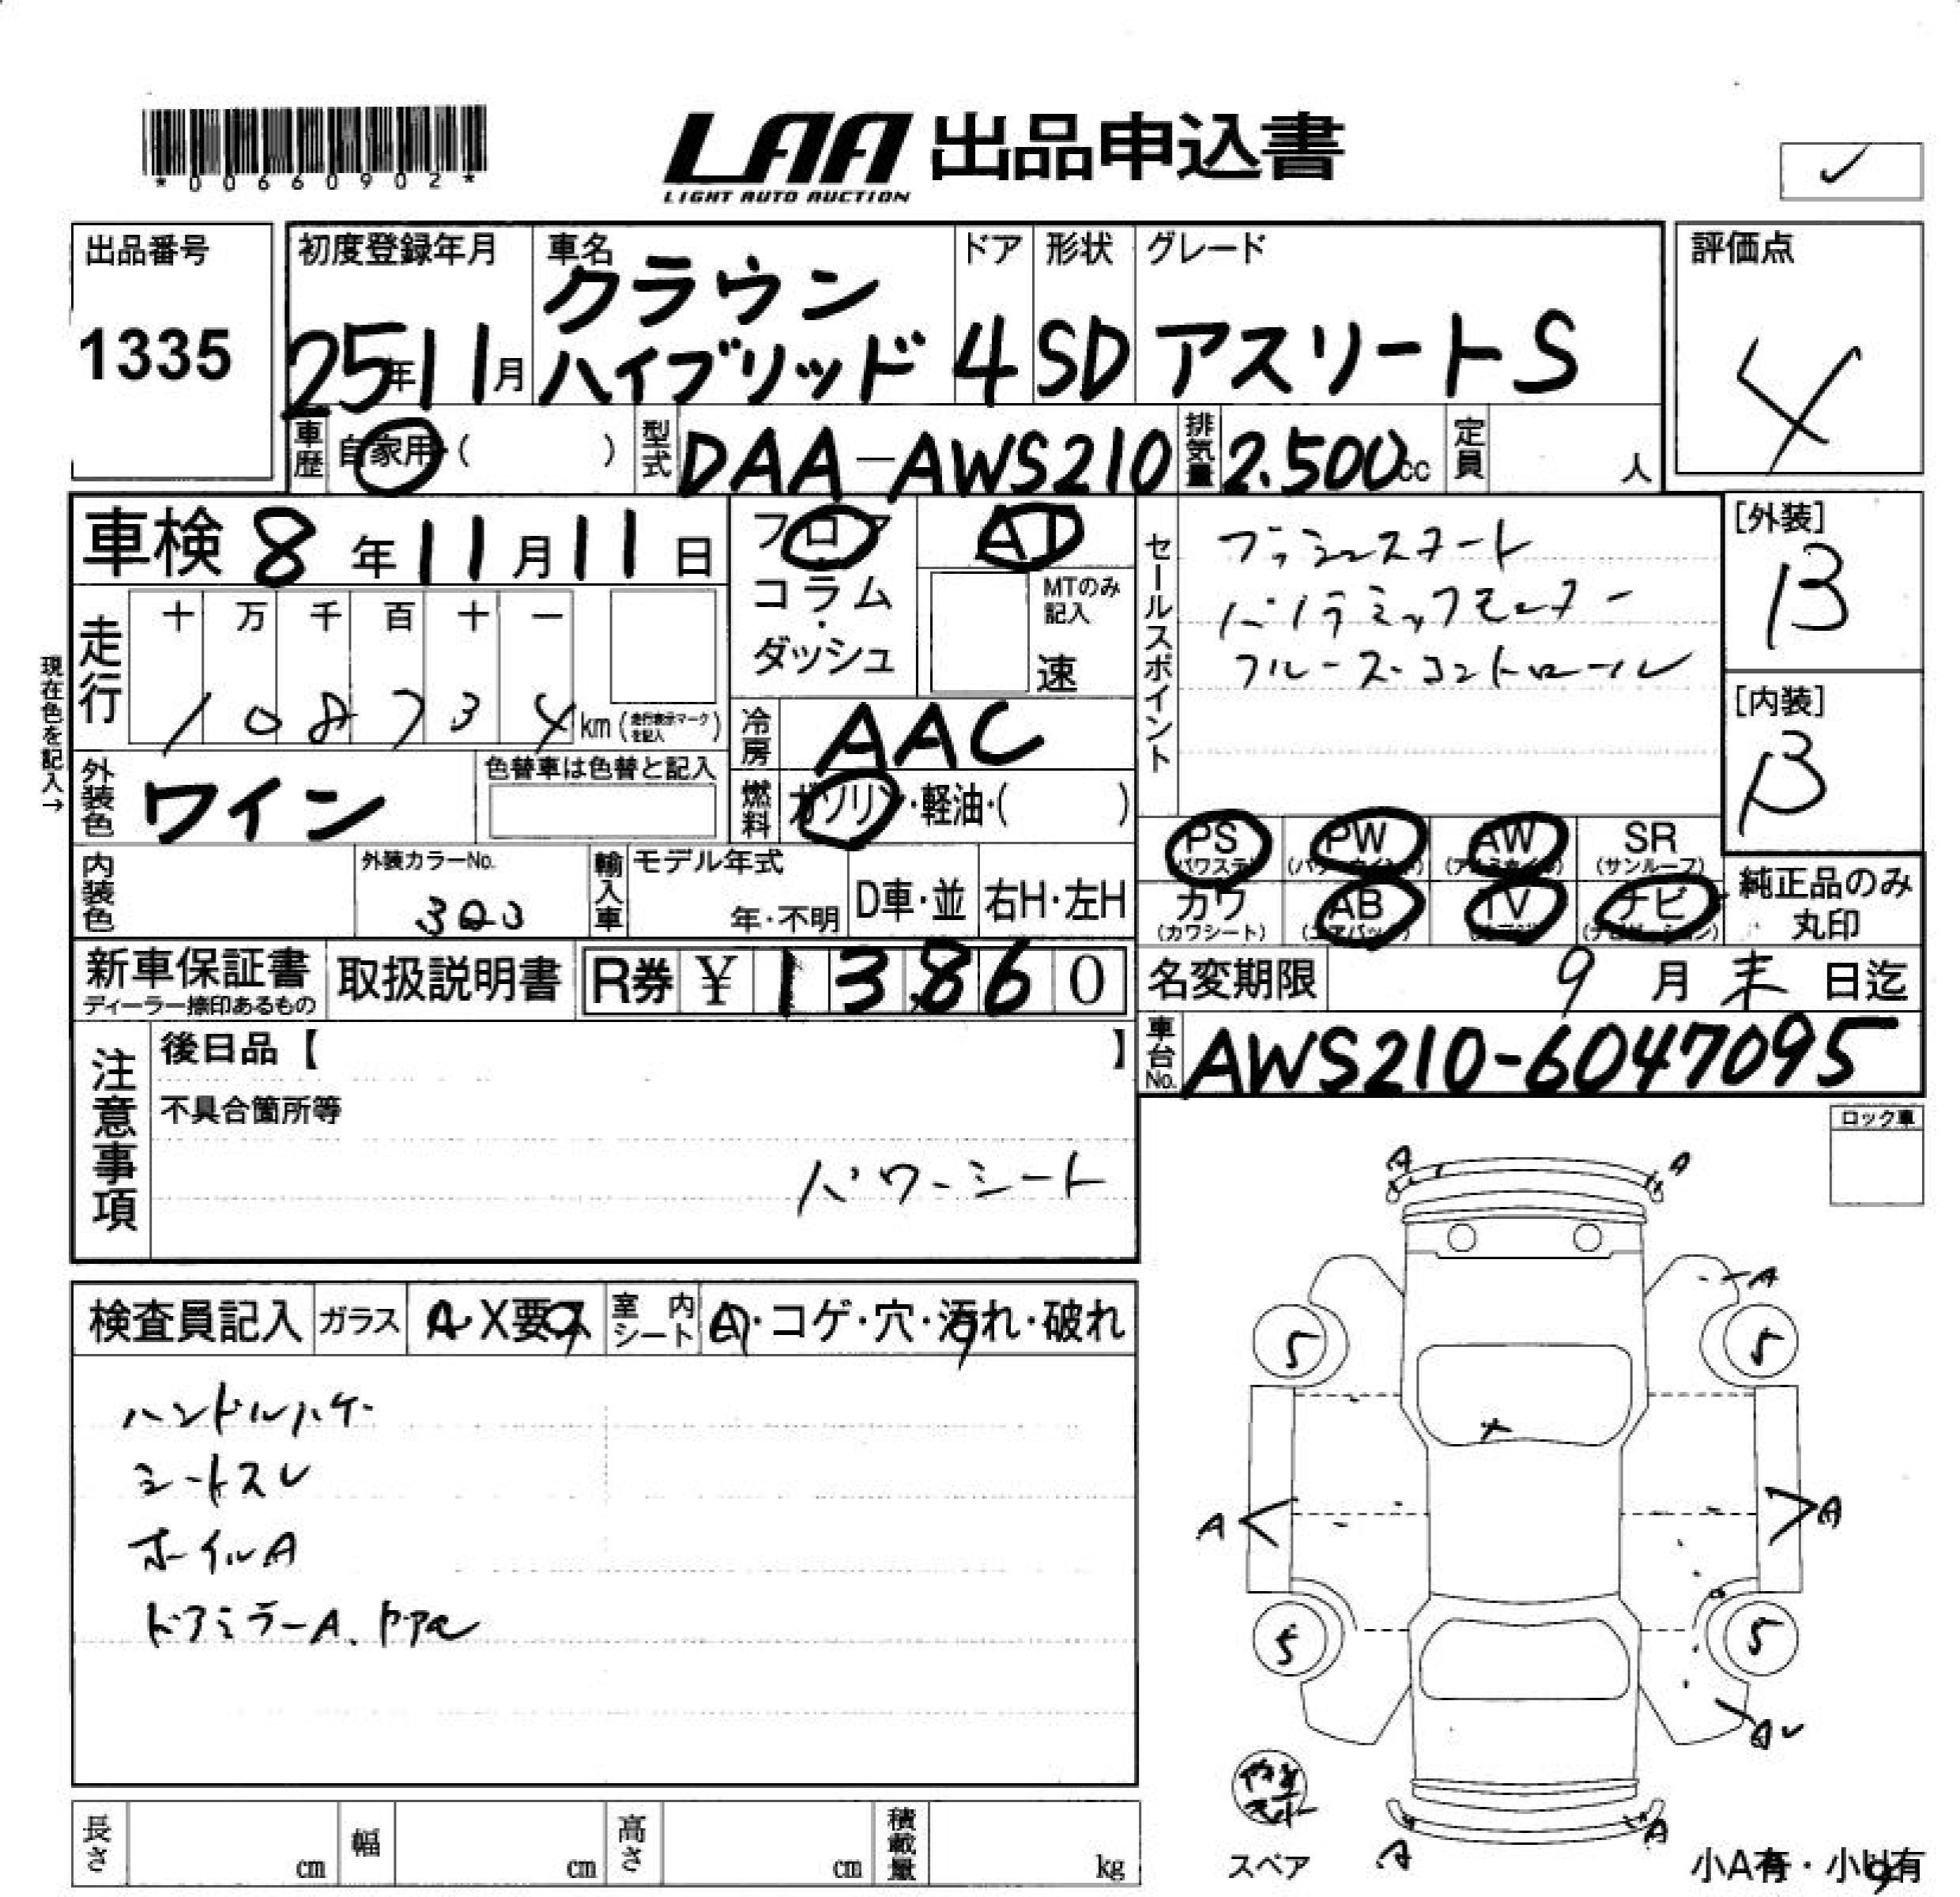 *00660902*
LAA 出品申込書
LIGHT AUTO AUCTION
出品番号
1335
初度登録年月
25年11月
車名
クラウン
ハイブリッド
ドア
4
形状
SD
グレード
アスリートS
評価点
4
車歴 自家用・( )
型式 DAA-AWS210
排気量 2.500cc
定員 人
車検 8年11月11日
フロア
コラム
・
ダッシュ
AT
MTのみ
記入
速
セールスポイント
プッシュスタート
パノラミックモニター
クルーズコントロール
[外装]
B
[内装]
B
現在色を記入→
走行
十 万 千 百 十 一
1 0 8 7 3 4 km (走行表示マークを記入)
冷房 AAC
外装色 ワイン
色替車は色替と記入
燃料 ガソリン・軽油・( )
PS (パワステ)
PW (パワーウインド)
AW (アルミホイル)
SR (サンルーフ)
カワ (カワシート)
AB (エアバック)
TV
ナビ (ナビゲーション)
純正品のみ
丸印
内装色
外装カラーNo.
3Q3
輸入車
モデル年式
年・不明
D車・並
右H・左H
新車保証書
ディーラー捺印あるもの
取扱説明書
R券 ¥ 13860
名変期限 9月末日迄
車台No. AWS210-6047095
注意事項
後日品【 】
不具合箇所等
パワーシート
ロック車
検査員記入
ガラス A・X要
室内シート
・コゲ・穴・汚れ・破れ
ハンドルハゲ
シートスレ
ホイルA
ドアミラーA.
A
A
A
5
5
A
A
5
5
A
A
スペア
小A有・小U有
長さ cm
幅 cm
高さ cm
積載量 kg